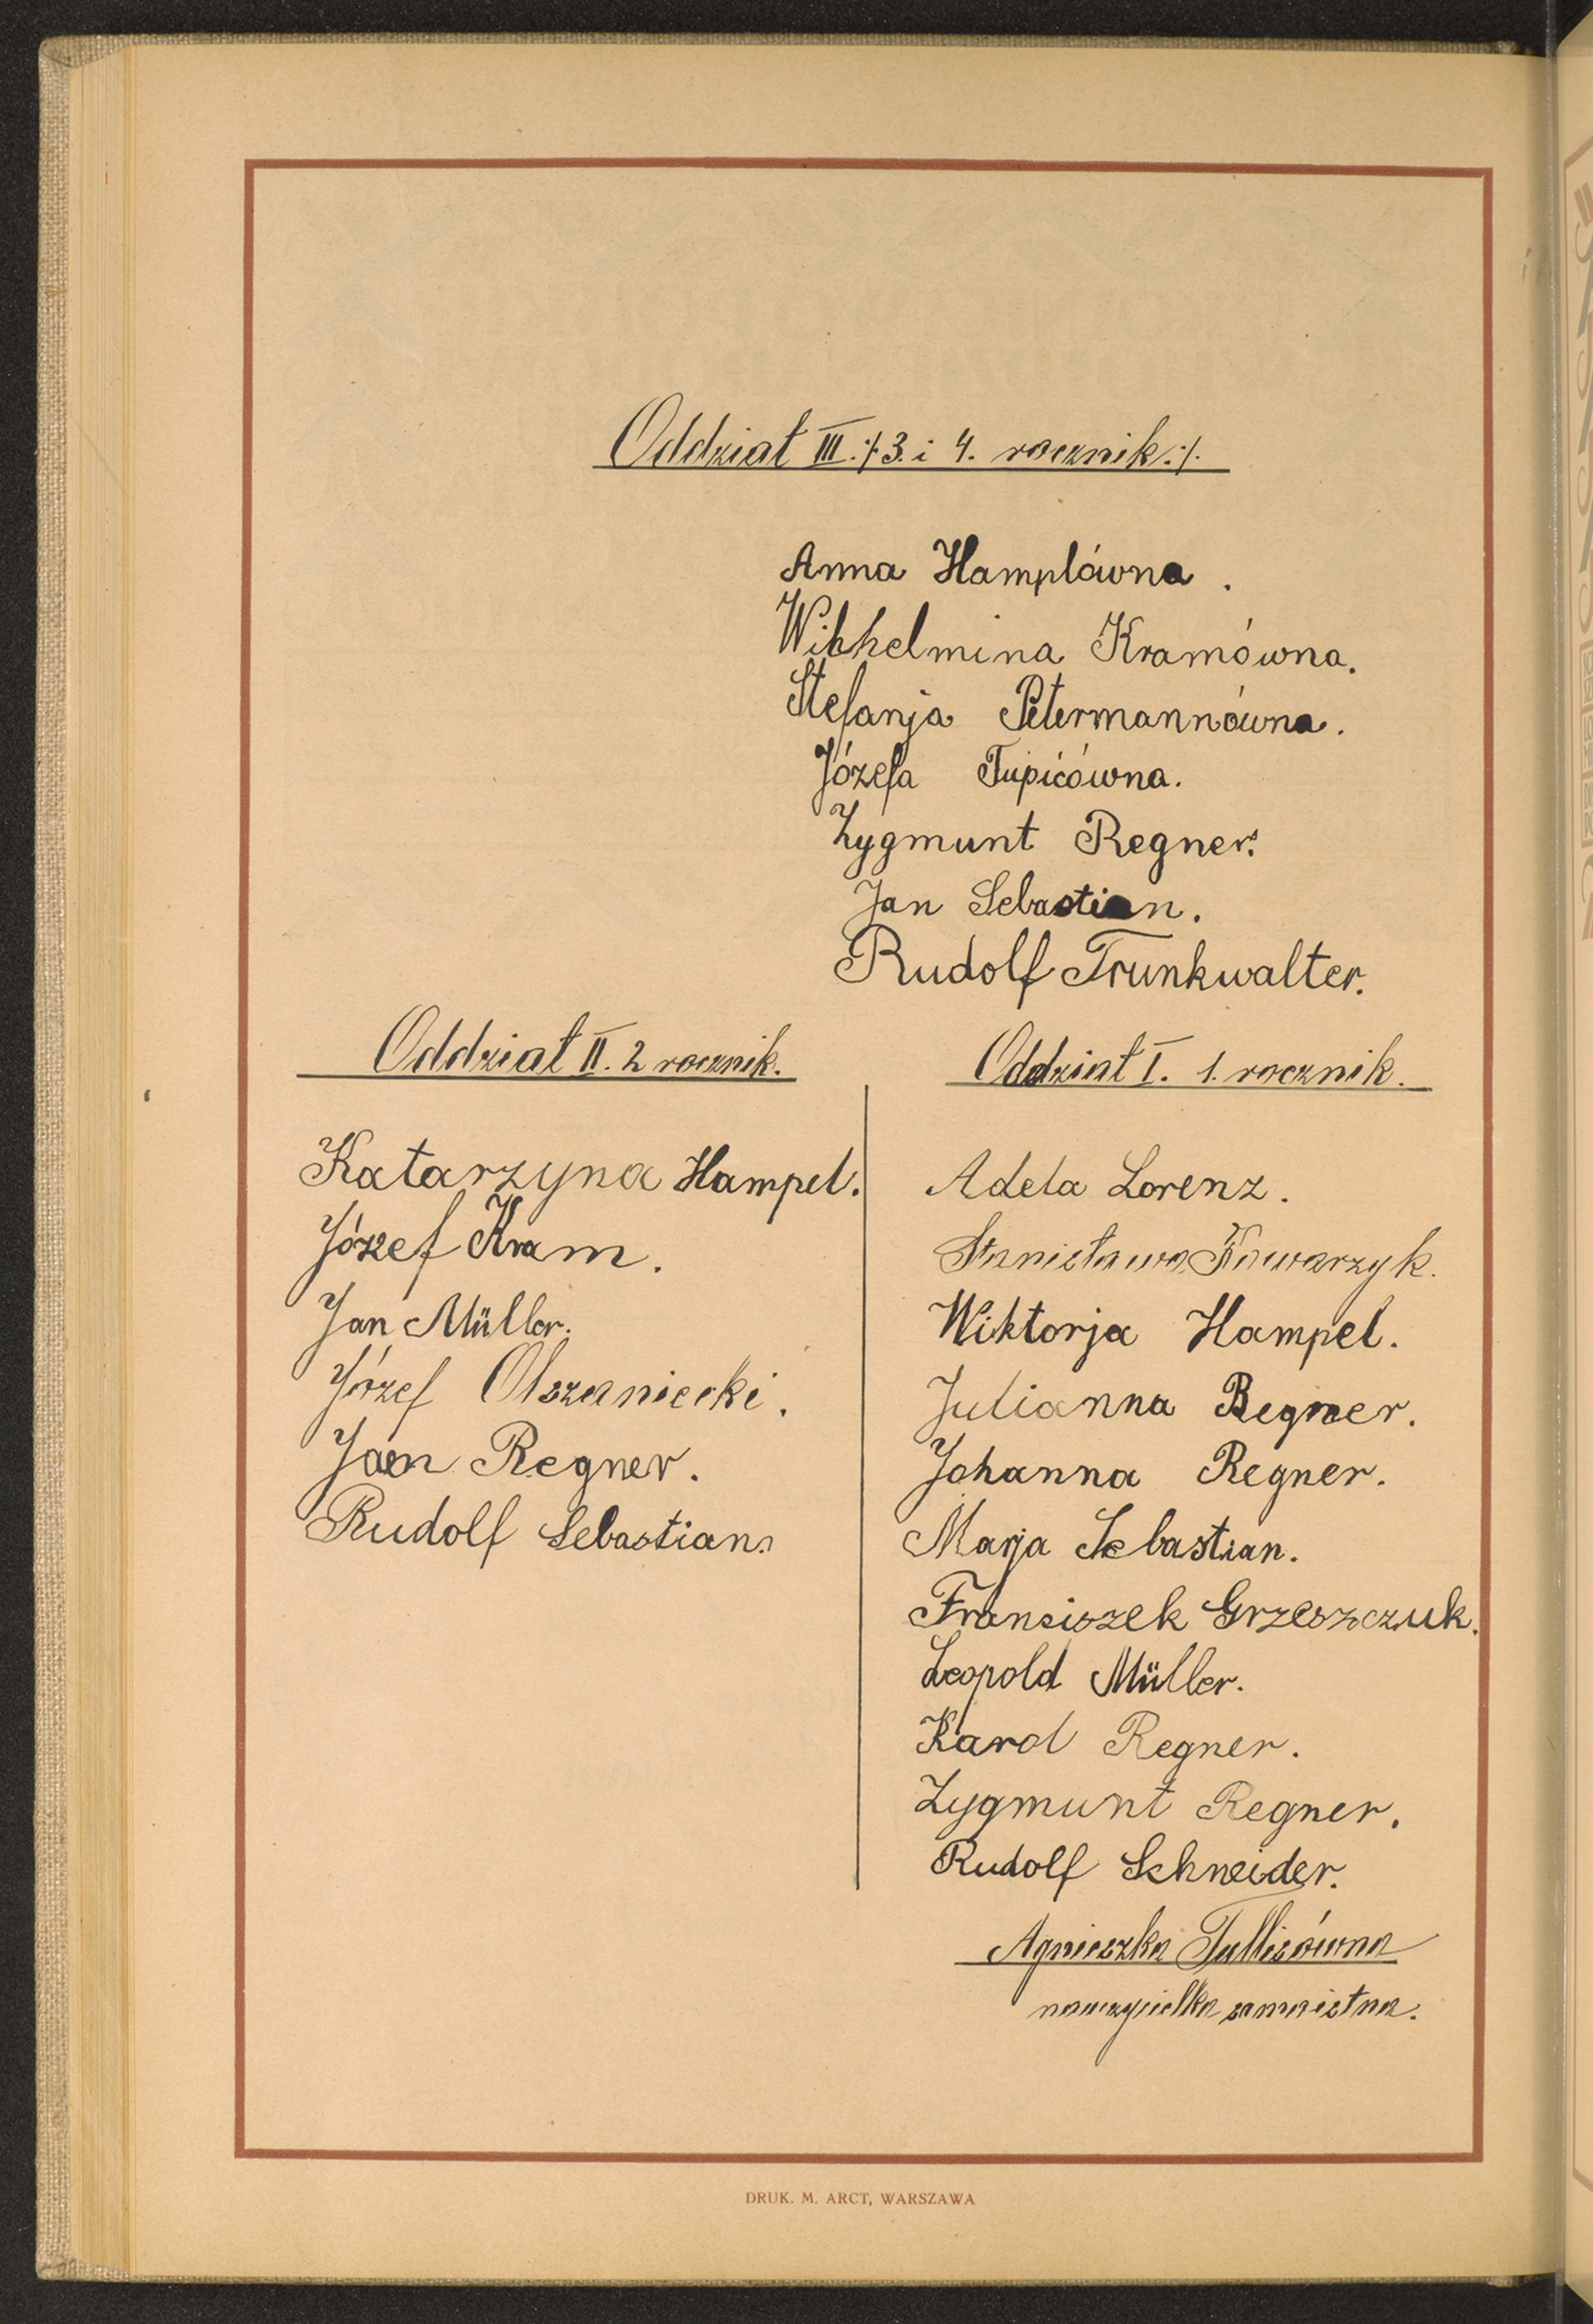 Oddział III. ./. 3. i 4. rocznik ./.
Anna Hamplówna.
Wilhelmina Kramówna.
Stefanja Petermannówna.
Józefa Tupicówna.
Zygmunt Regner.
Jan Sebastian.
Rudolf Trunkwalter.
Oddział II. 2 rocznik.
Katarzyna Hampel.
Józef Kram.
Jan Müller.
Józef Olszaniecki.
Jan Regner.
Rudolf Sebastian.
Oddział I. 1. rocznik.
Adela Lorenz.
Stanisława Kowarzyk.
Wiktorja Hampel.
Julianna Regner.
Johanna Regner.
Marja Sebastian.
Franciszek Grzeszczuk.
Leopold Müller.
Karol Regner.
Zygmunt Regner.
Rudolf Schneider.
Agnieszka Tullisówna
nauczycielka samoistna.
DRUK. M. ARCT, WARSZAWA